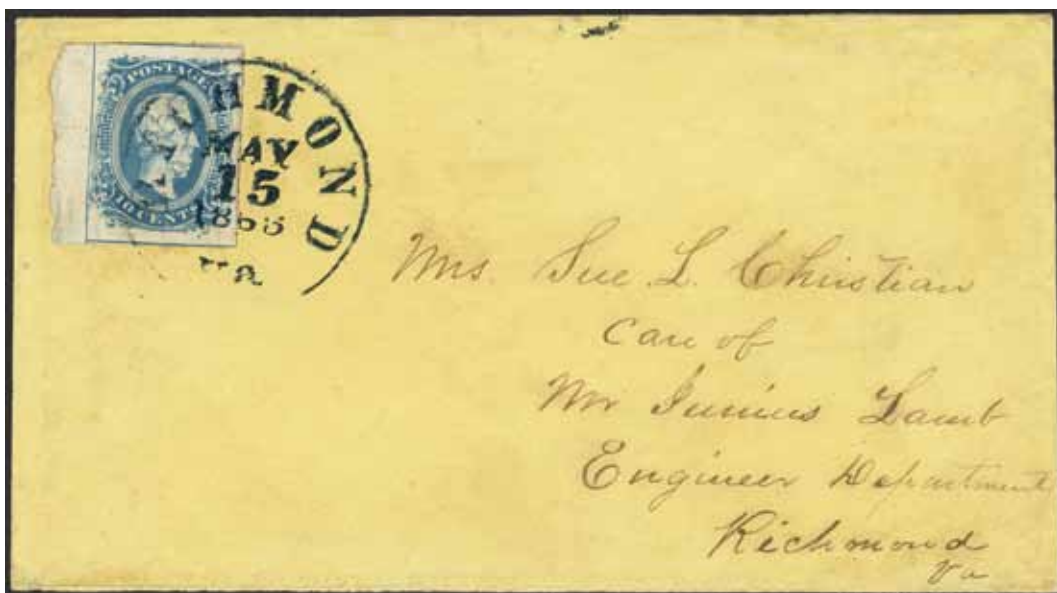 POSTAGE
10 CENTS
HMOND
MAY
15
1863
Va
Mrs. Sue L. Christian
Care of
Mr Junius Lamb
Engineer Department
Richmond
Va